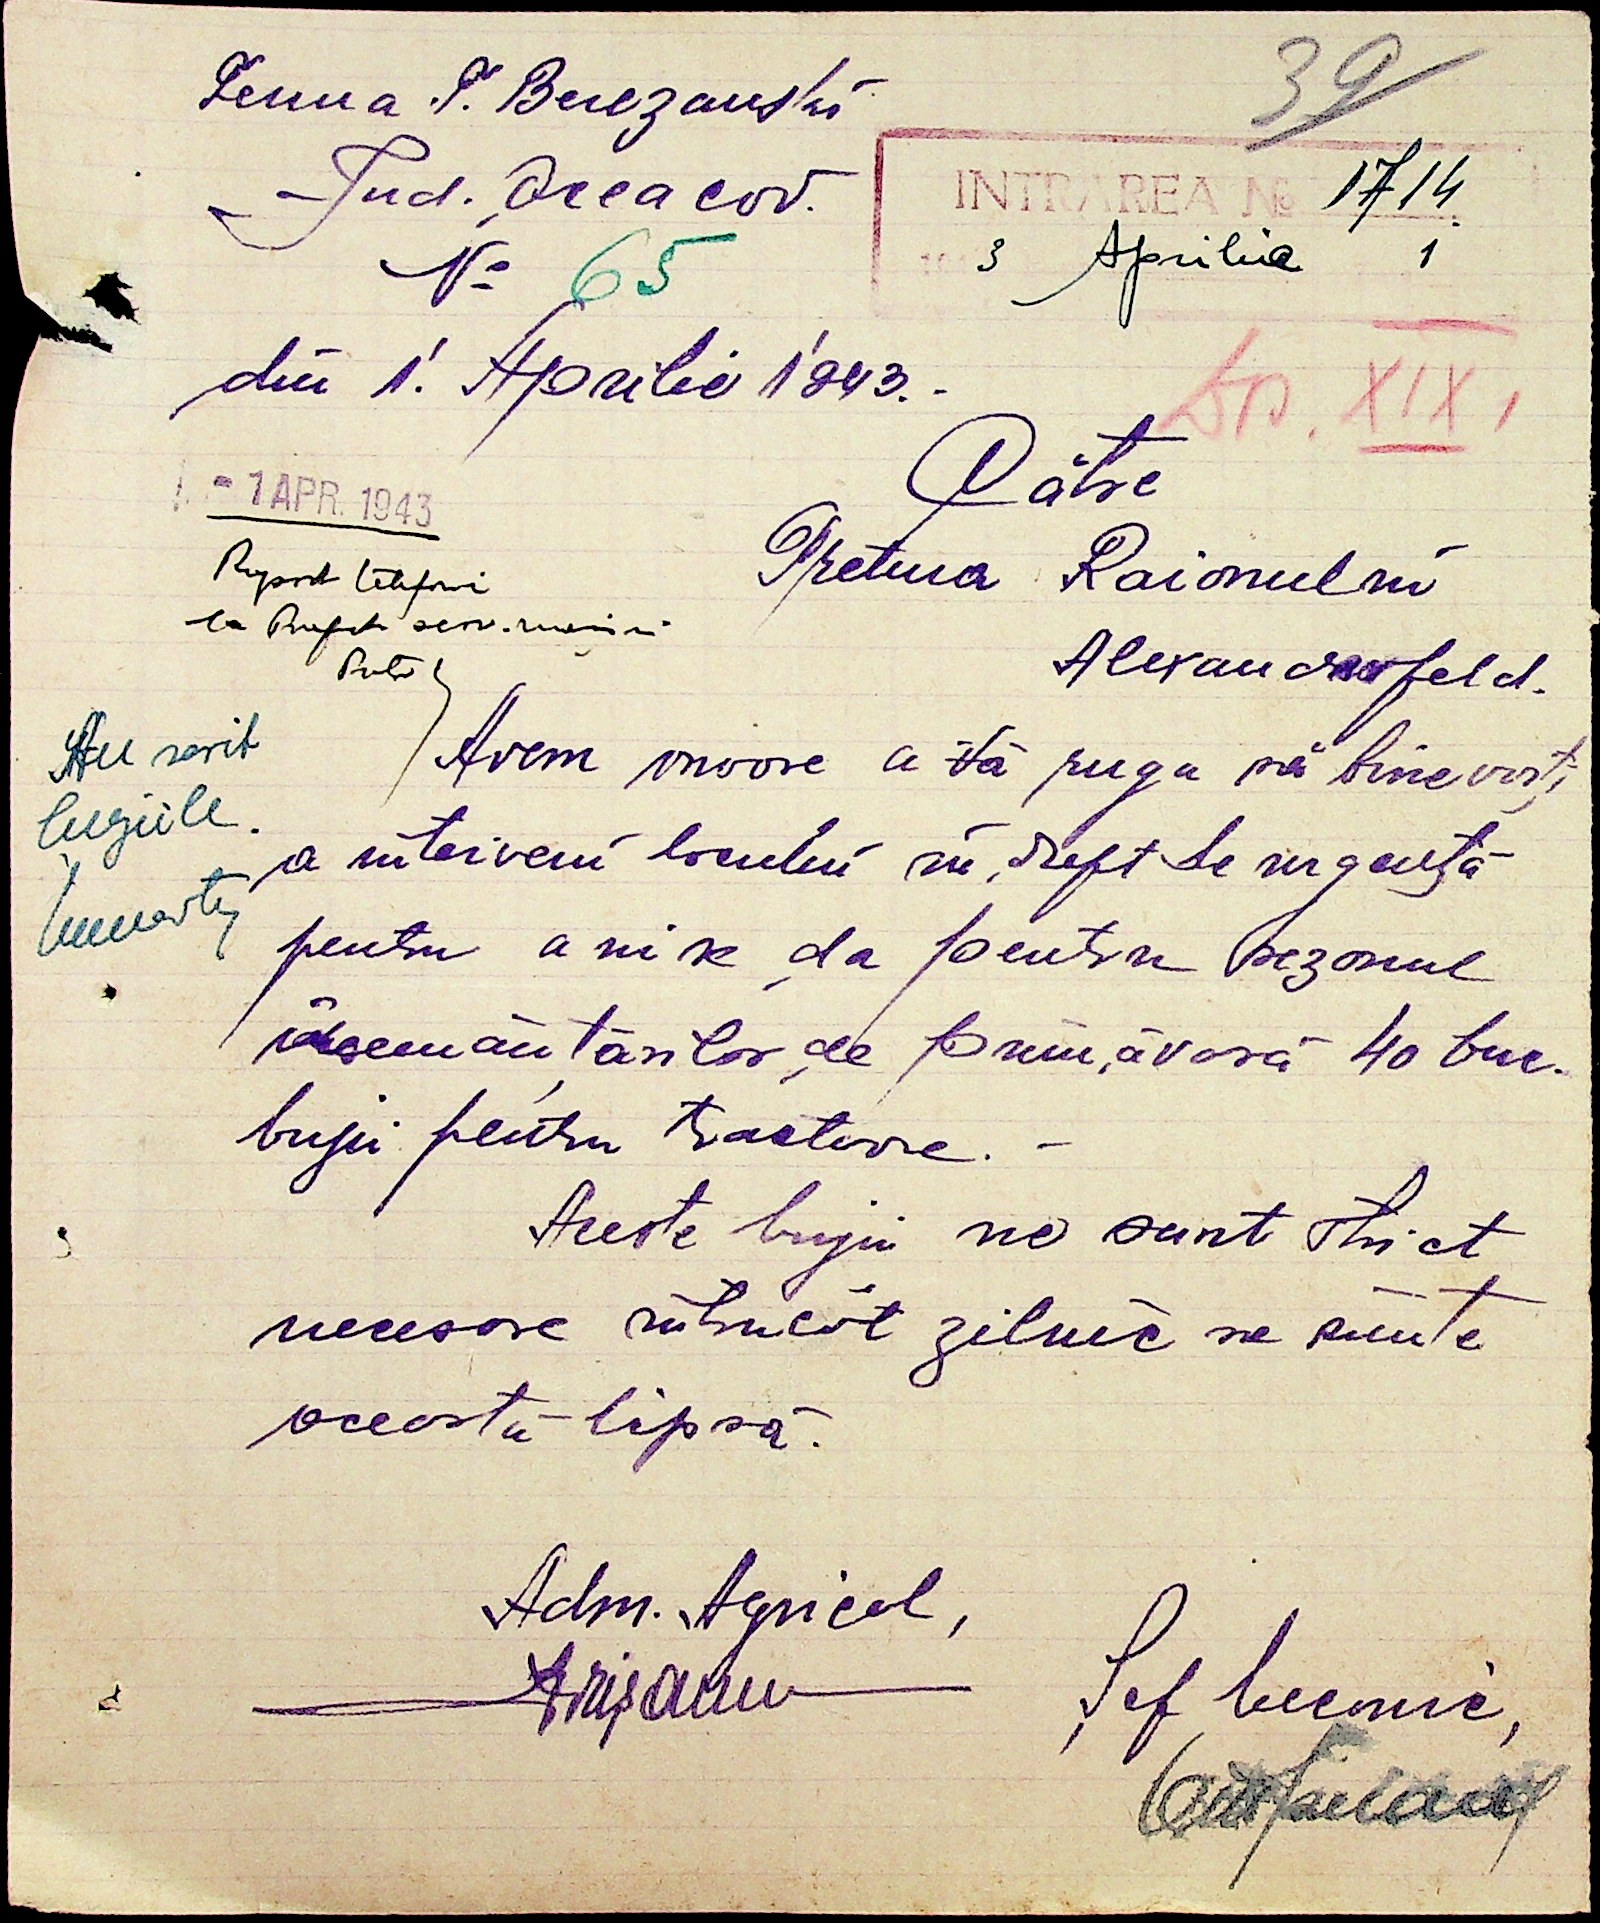 Ferma T. Berezanski
39
Jud. Oceacov.
INTRAREA № 1714
№ 65
3 Aprilie 1
din 1. Aprilie 1943.-
XIX
Către
- 1 APR. 1943
Pretura Raionului
Raport telefonic
la
Alexanderfeld.
Avem onoare a Vă ruga să binevoiți
Au sosit
bujiile.
a interveni locului în drept de urgență
pentru a ni se da pentru sezonul
însemânțărilor de primăvară 40 buc.
bujii pentru tractoare. -
Aceste bujii ne sunt strict
necesare întrucât zilnic se simte
această lipsă.
Adm. Agricol,
Șef tecnic,